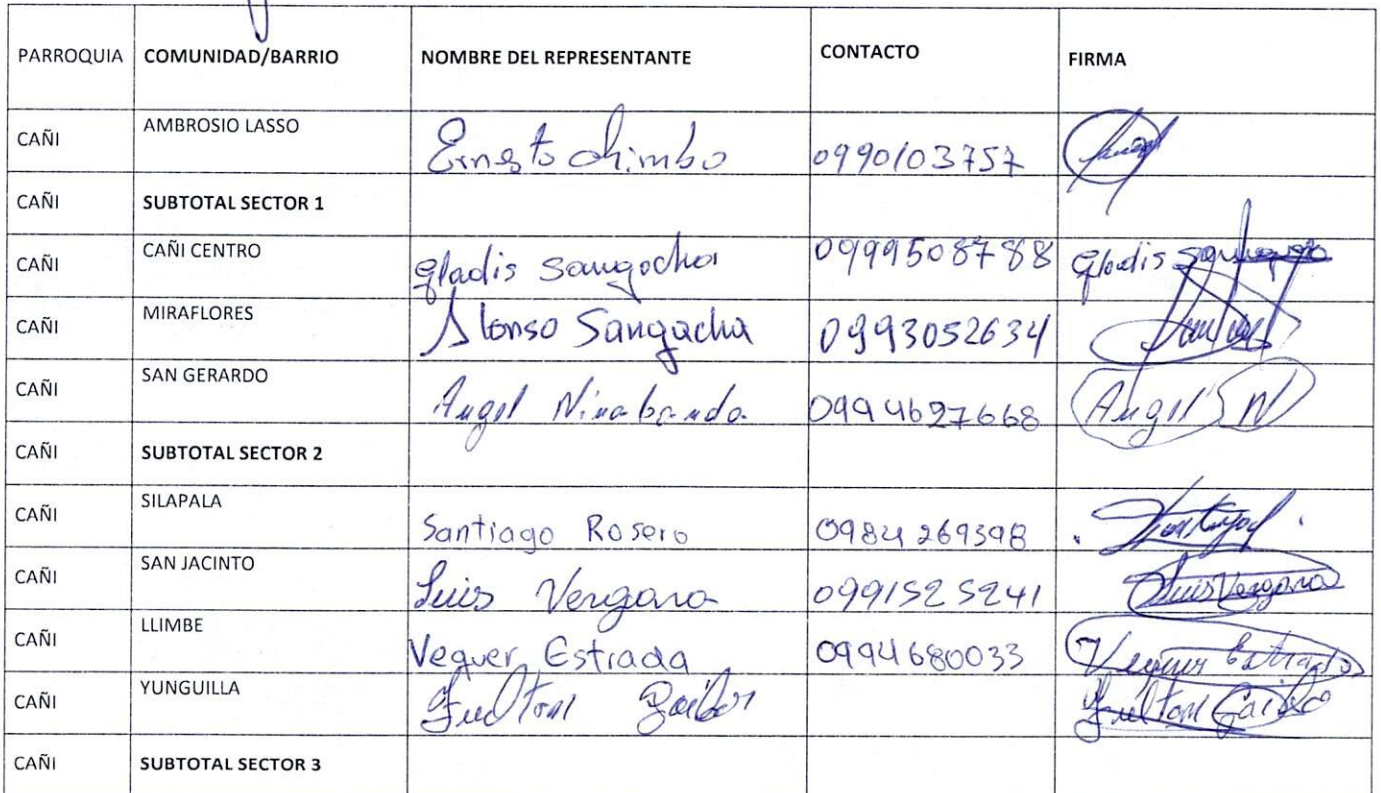 PARROQUIA COMUNIDAD/BARRIO NOMBRE DEL REPRESENTANTE CONTACTO FIRMA
CAÑI AMBROSIO LASSO Ernesto chimbo 0990103757
CAÑI SUBTOTAL SECTOR 1
CAÑI CAÑI CENTRO Gladis Sangacha 0999508788 Gladis
CAÑI MIRAFLORES Alonso Sangacha 0993052634
CAÑI SAN GERARDO Angel Ninabanda 0994627668 Angel N
CAÑI SUBTOTAL SECTOR 2
CAÑI SILAPALA Santiago Rosero 0984269398
CAÑI SAN JACINTO Luis Vergara 0991525241 Luis Vergara
CAÑI LLIMBE Vequer Estrada 0994680033 Estrada
CAÑI YUNGUILLA Fuelton Gaibor Fuelton
CAÑI SUBTOTAL SECTOR 3